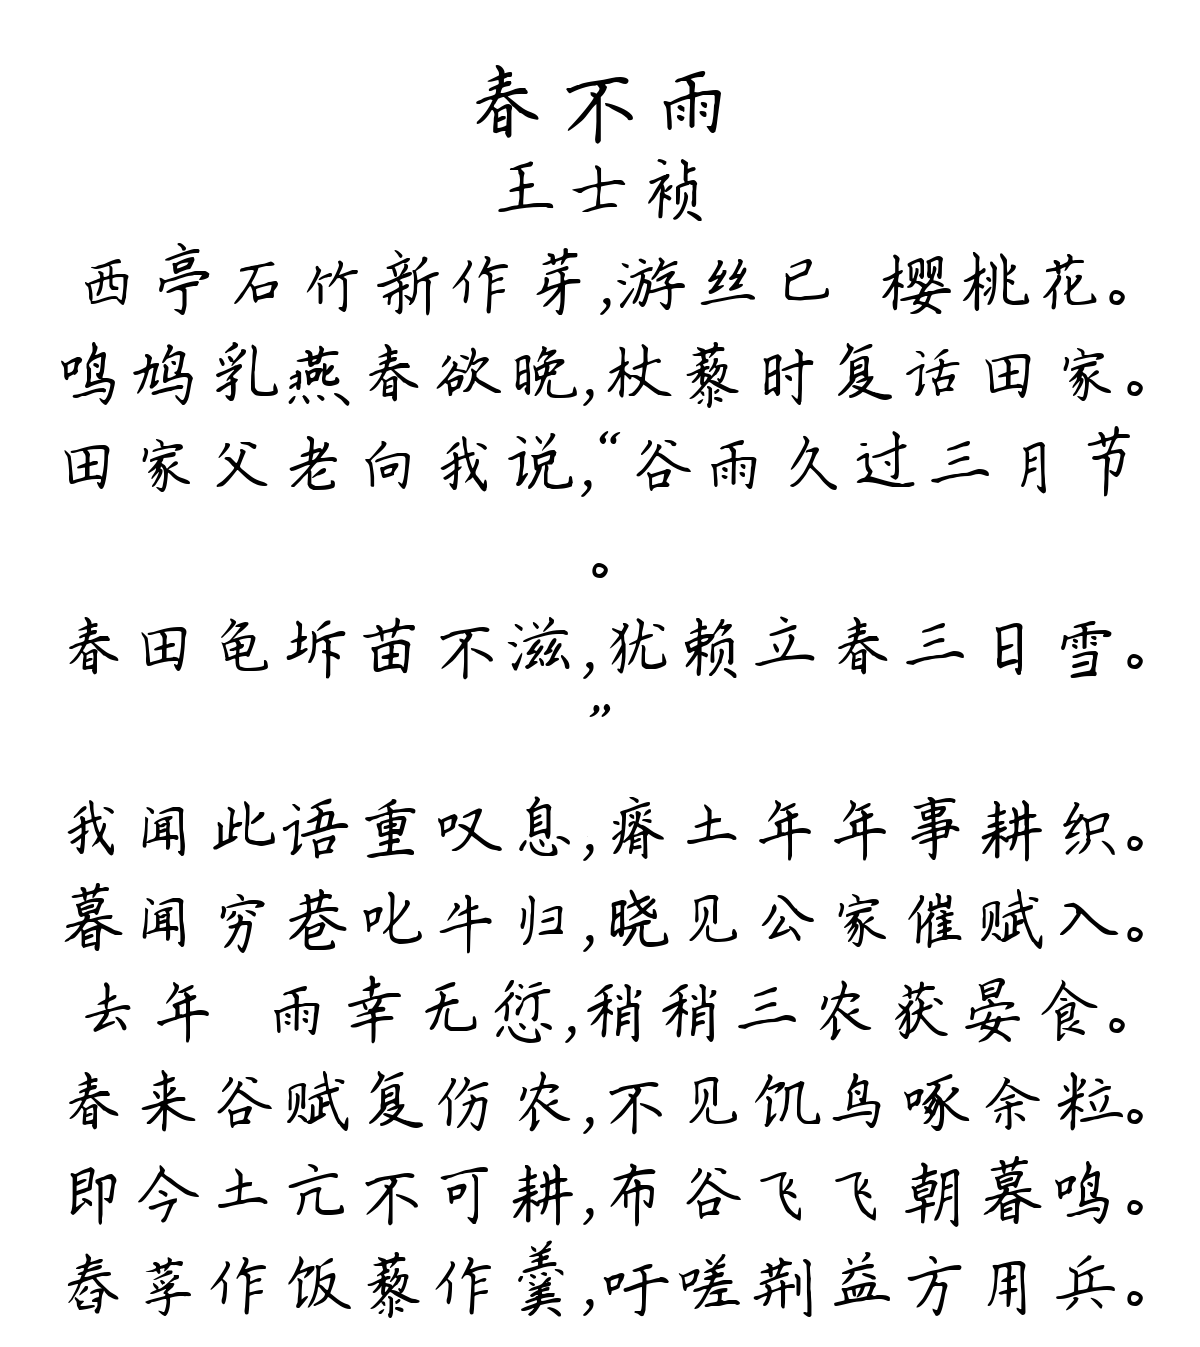 春不雨
王士祯
西亭石竹新作芽,游丝已 樱桃花。
鸣鸠乳燕春欲晚,杖藜时复话田家。
田家父老向我说,“谷雨久过三月节
。
春田龟坼苗不滋,犹赖立春三日雪。
”
我闻此语重叹息,瘠土年年事耕织。
暮闻穷巷叱牛归,晓见公家催赋入。
去年 雨幸无愆,稍稍三农获晏食。
春来谷赋复伤农,不见饥鸟啄余粒。
即今土亢不可耕,布谷飞飞朝暮鸣。
舂莩作饭藜作羹,吁嗟荆益方用兵。